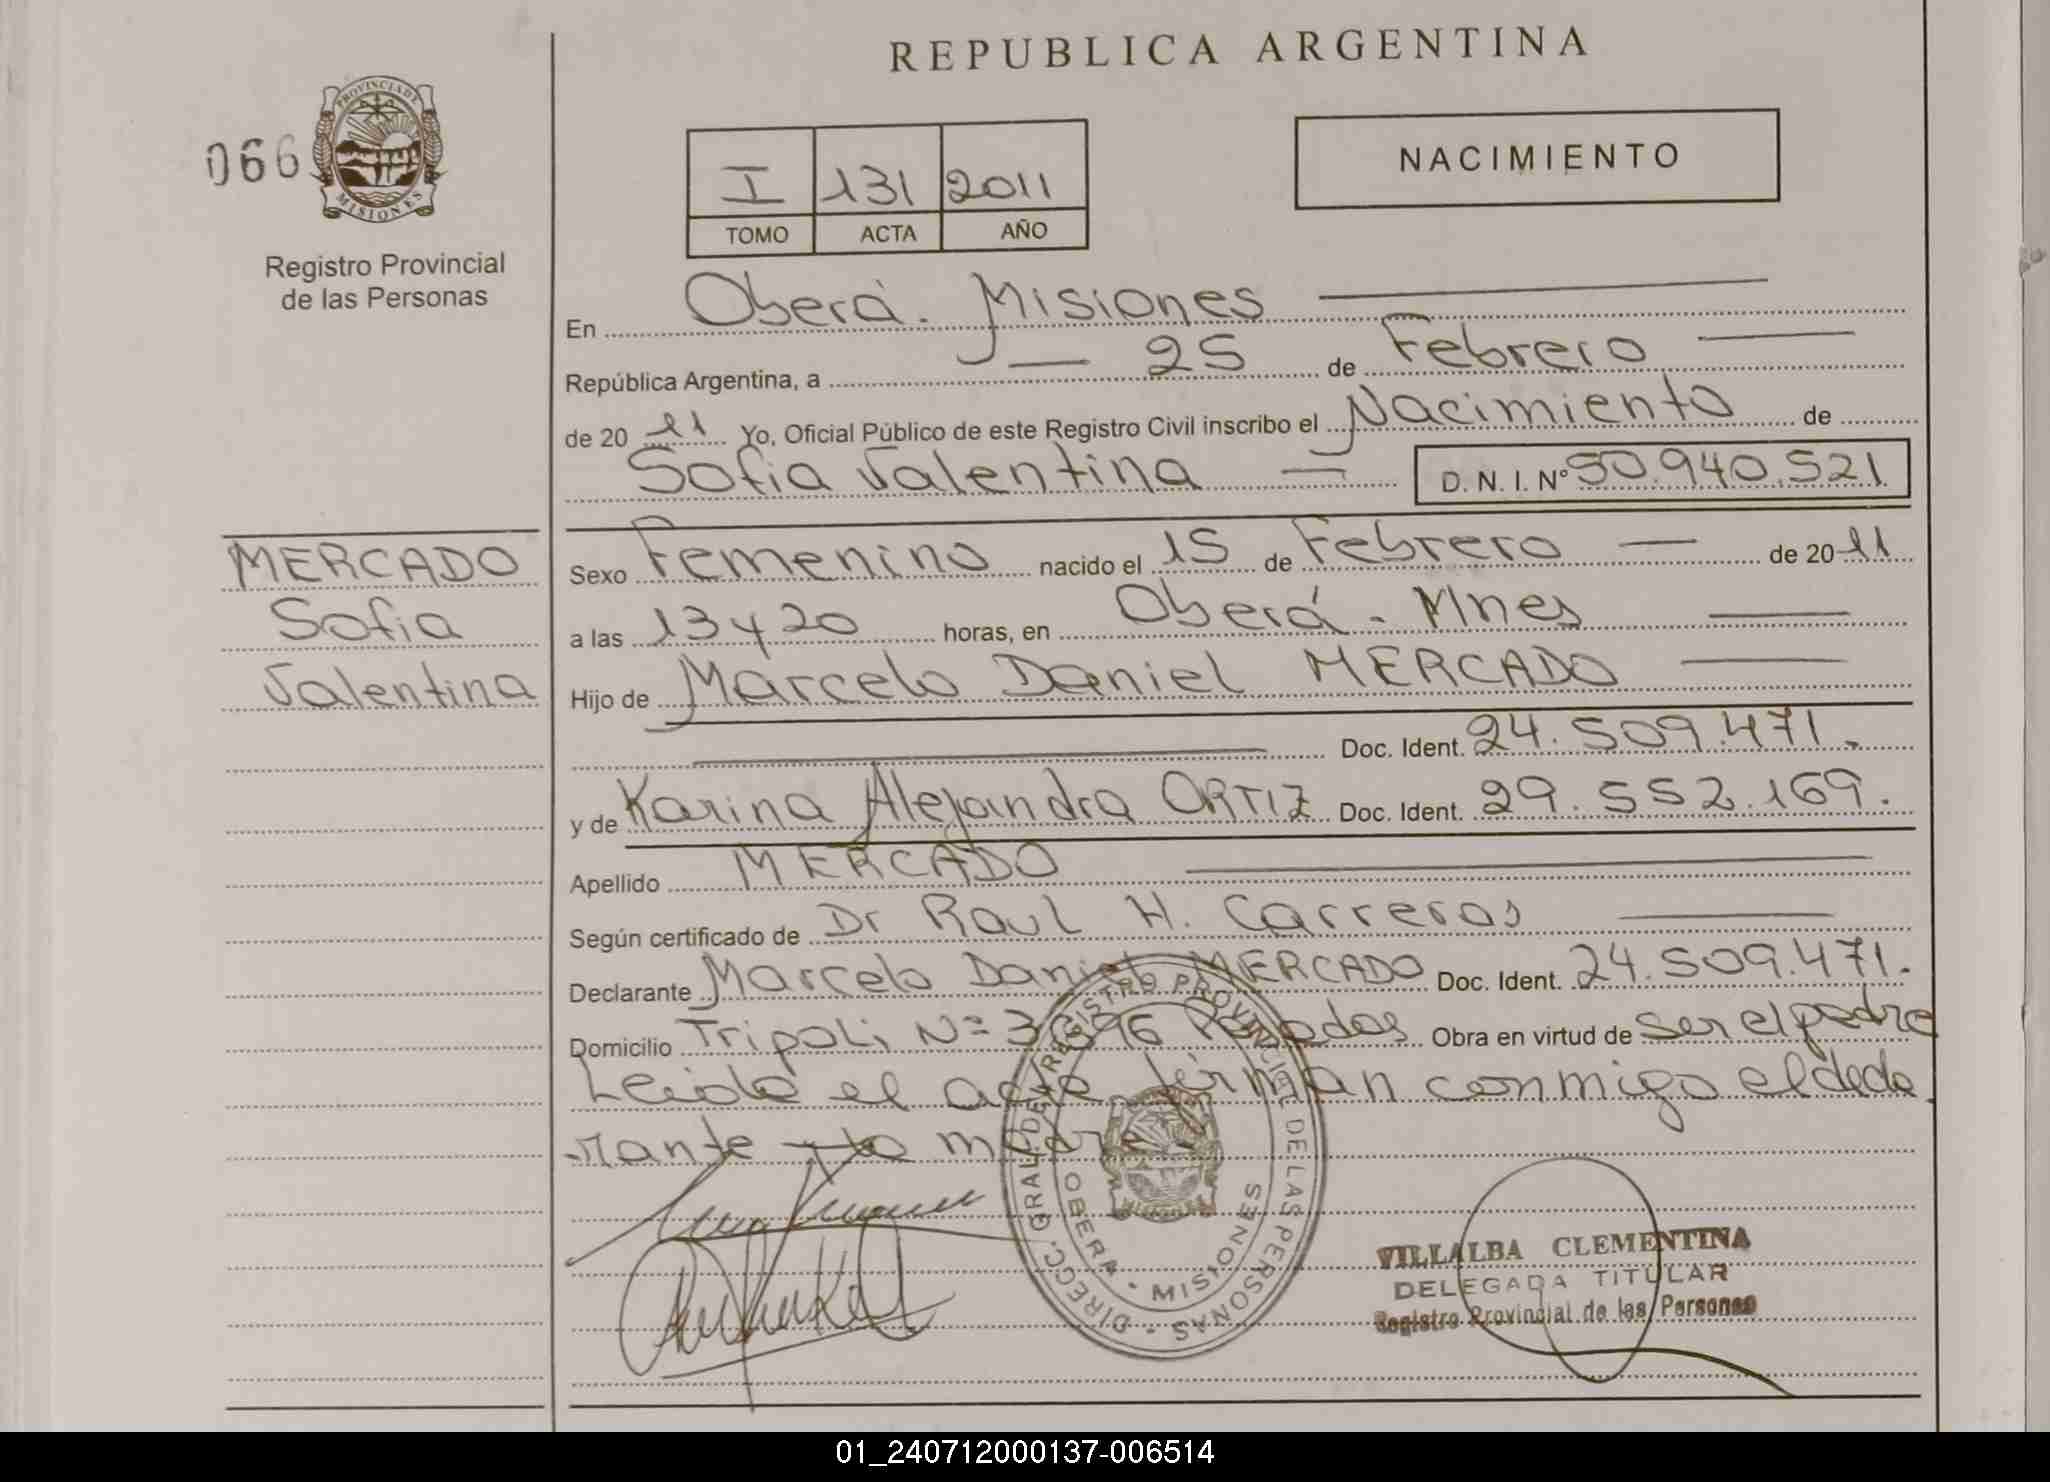 REPUBLICA ARGENTINA
066
PROVINCIA DE
MISIONES
Registro Provincial
de las Personas
I 131 2011
TOMO ACTA AÑO
NACIMIENTO
En Oberá. Misiones
República Argentina, a 25 de Febrero
de 20 11 Yo, Oficial Público de este Registro Civil inscribo el Nacimiento de
Sofia Valentina D. N. I. Nº 50.940.521
MERCADO
Sofia
Valentina
Sexo Femenino nacido el 15 de Febrero de 20 11
a las 13 y 20 horas, en Oberá. Mnes
Hijo de Marcelo Daniel MERCADO
Doc. Ident. 24.509.471.
y de Karina Alejandra ORTIZ Doc. Ident. 29.552.169.
Apellido MERCADO
Según certificado de Dr Raul H. Carreras
Declarante Marcelo Daniel MERCADO Doc. Ident. 24.509.471.
Domicilio Tripoli Nº Obra en virtud de ser el padre
Leida el acta firman conmigo el decla
rante y la madre
DIRECC. GRAL. DEL REGISTRO PROVINCIAL DE LAS PERSONAS
OBERA - MISIONES
VILLALBA CLEMENTINA
DELEGADA TITULAR
Registro Provincial de las Personas
01_240712000137-006514